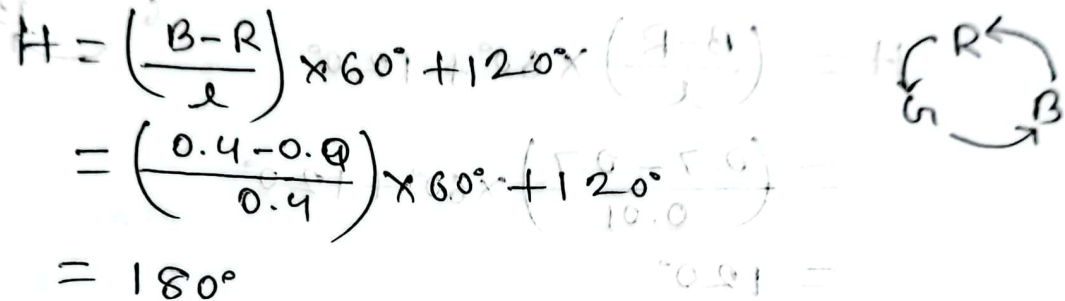 H = (B-R / l) × 60° + 120°
= (0.4-0.0 / 0.4) × 60° + 120°
= 180°
R
G B